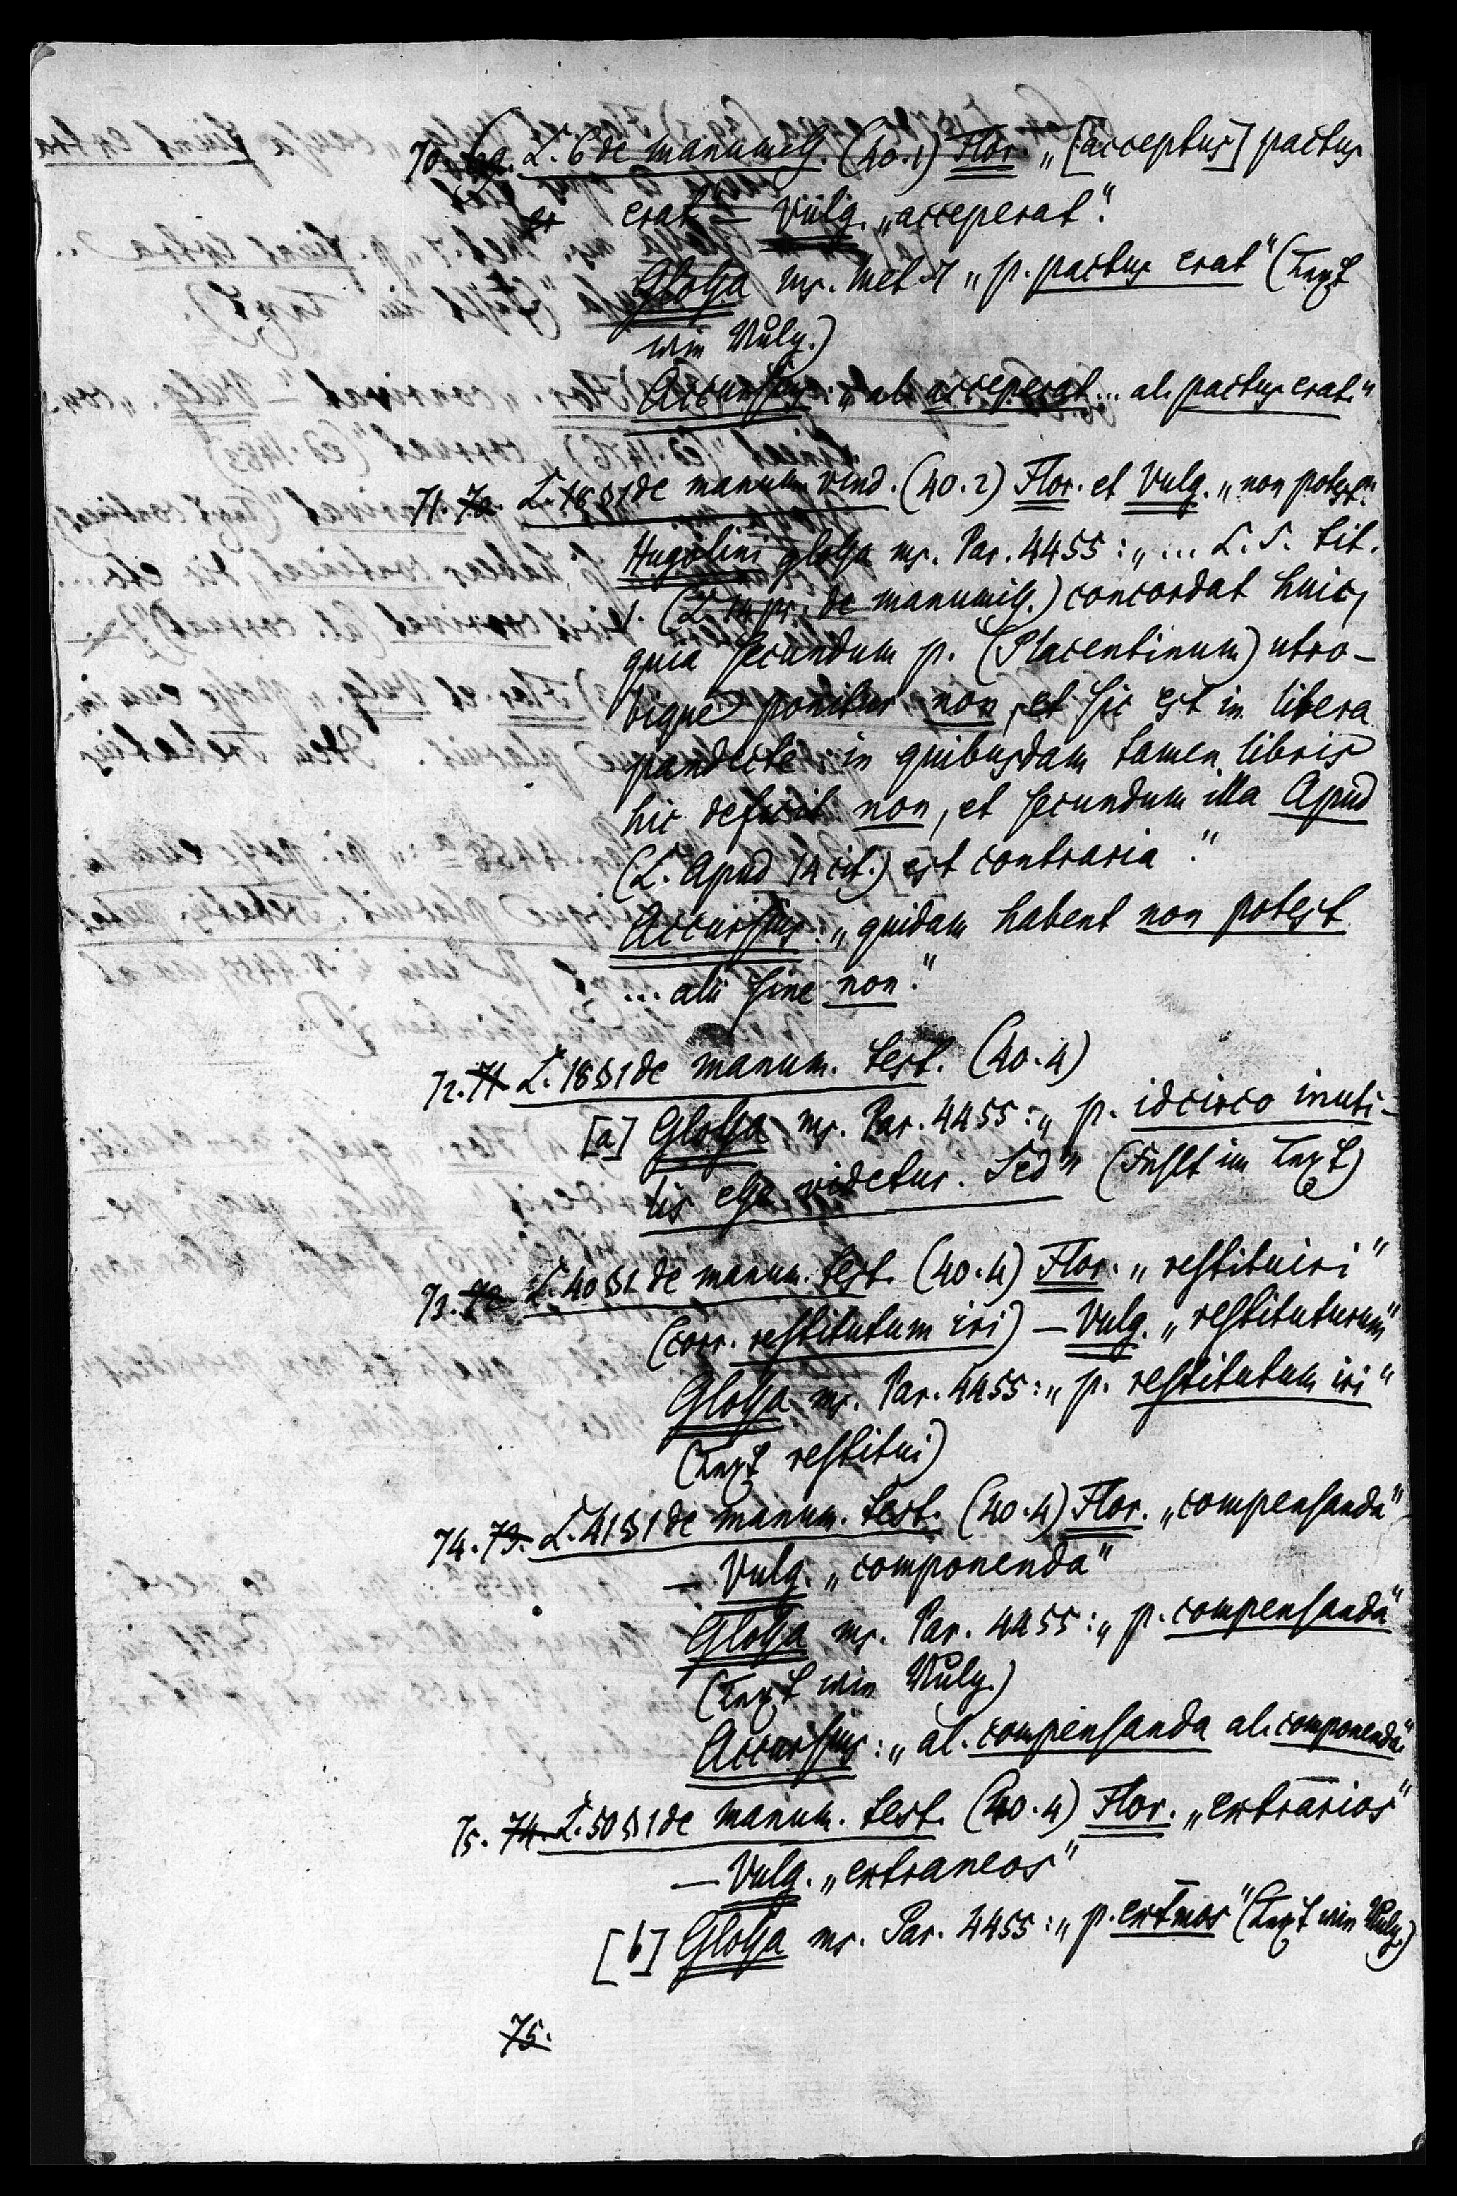 70. 69. L. 6 de manumiss. (40.1) Flor „[acceptus] pactus
erat“ — Vulg. „acceperat“.
Glossa ms. Met. 7 „p. pactus erat“ (Text
wie Vulg.)
Accursius: „al. acceperat... al. pactus erat.“
71. 70. L. 18 § 1 de manum. vind. (40.2) Flor. et Vulg. „non potest“.
Hugolini glossa ms. Par. 4455: „... L. S. tit.
1. (L. 14 pr. de manumiss.) concordat huic,
quia secundum p. (Placentinum) utro-
bique ponitur non, et sic est in libera
pandecta in quibusdam tamen libris
hic deficit non, et secundum illa Apud
(L. Apud 14 cit.) est contraria“.
Accursius: „quidam habent non potest
... alii sine non“.
72. 71 L. 18 § 1 de manum. test. (40.4)
[a] Glossa ms. Par. 4455: „p. idcirco inuti-
lis esse videtur. Sed“ (Fehlt im Text)
73. 72 L. 40 § 1 de manum. test. (40.4) Flor. „restituiri“
(corr. restitutum iri) — Vulg. „restituturum“
Glossa ms. Par. 4455: „p. restitutum iri“
(Text restitui)
74. 73. L. 41 § 1 de manum. test. (40.4) Flor. „compensanda“
— Vulg. „componenda“
Glossa ms. Par. 4455: „p. compensanda“
(Text wie Vulg.)
Accursius: „al. compensanda al. componenda“
75. 74. L. 50 § 1 de manum. test. (40.4) Flor. „extrarios“
— Vulg. „extraneos“
[b] Glossa ms. Par. 4455: „p. extmos“ (Text wie Vulg.)
75.